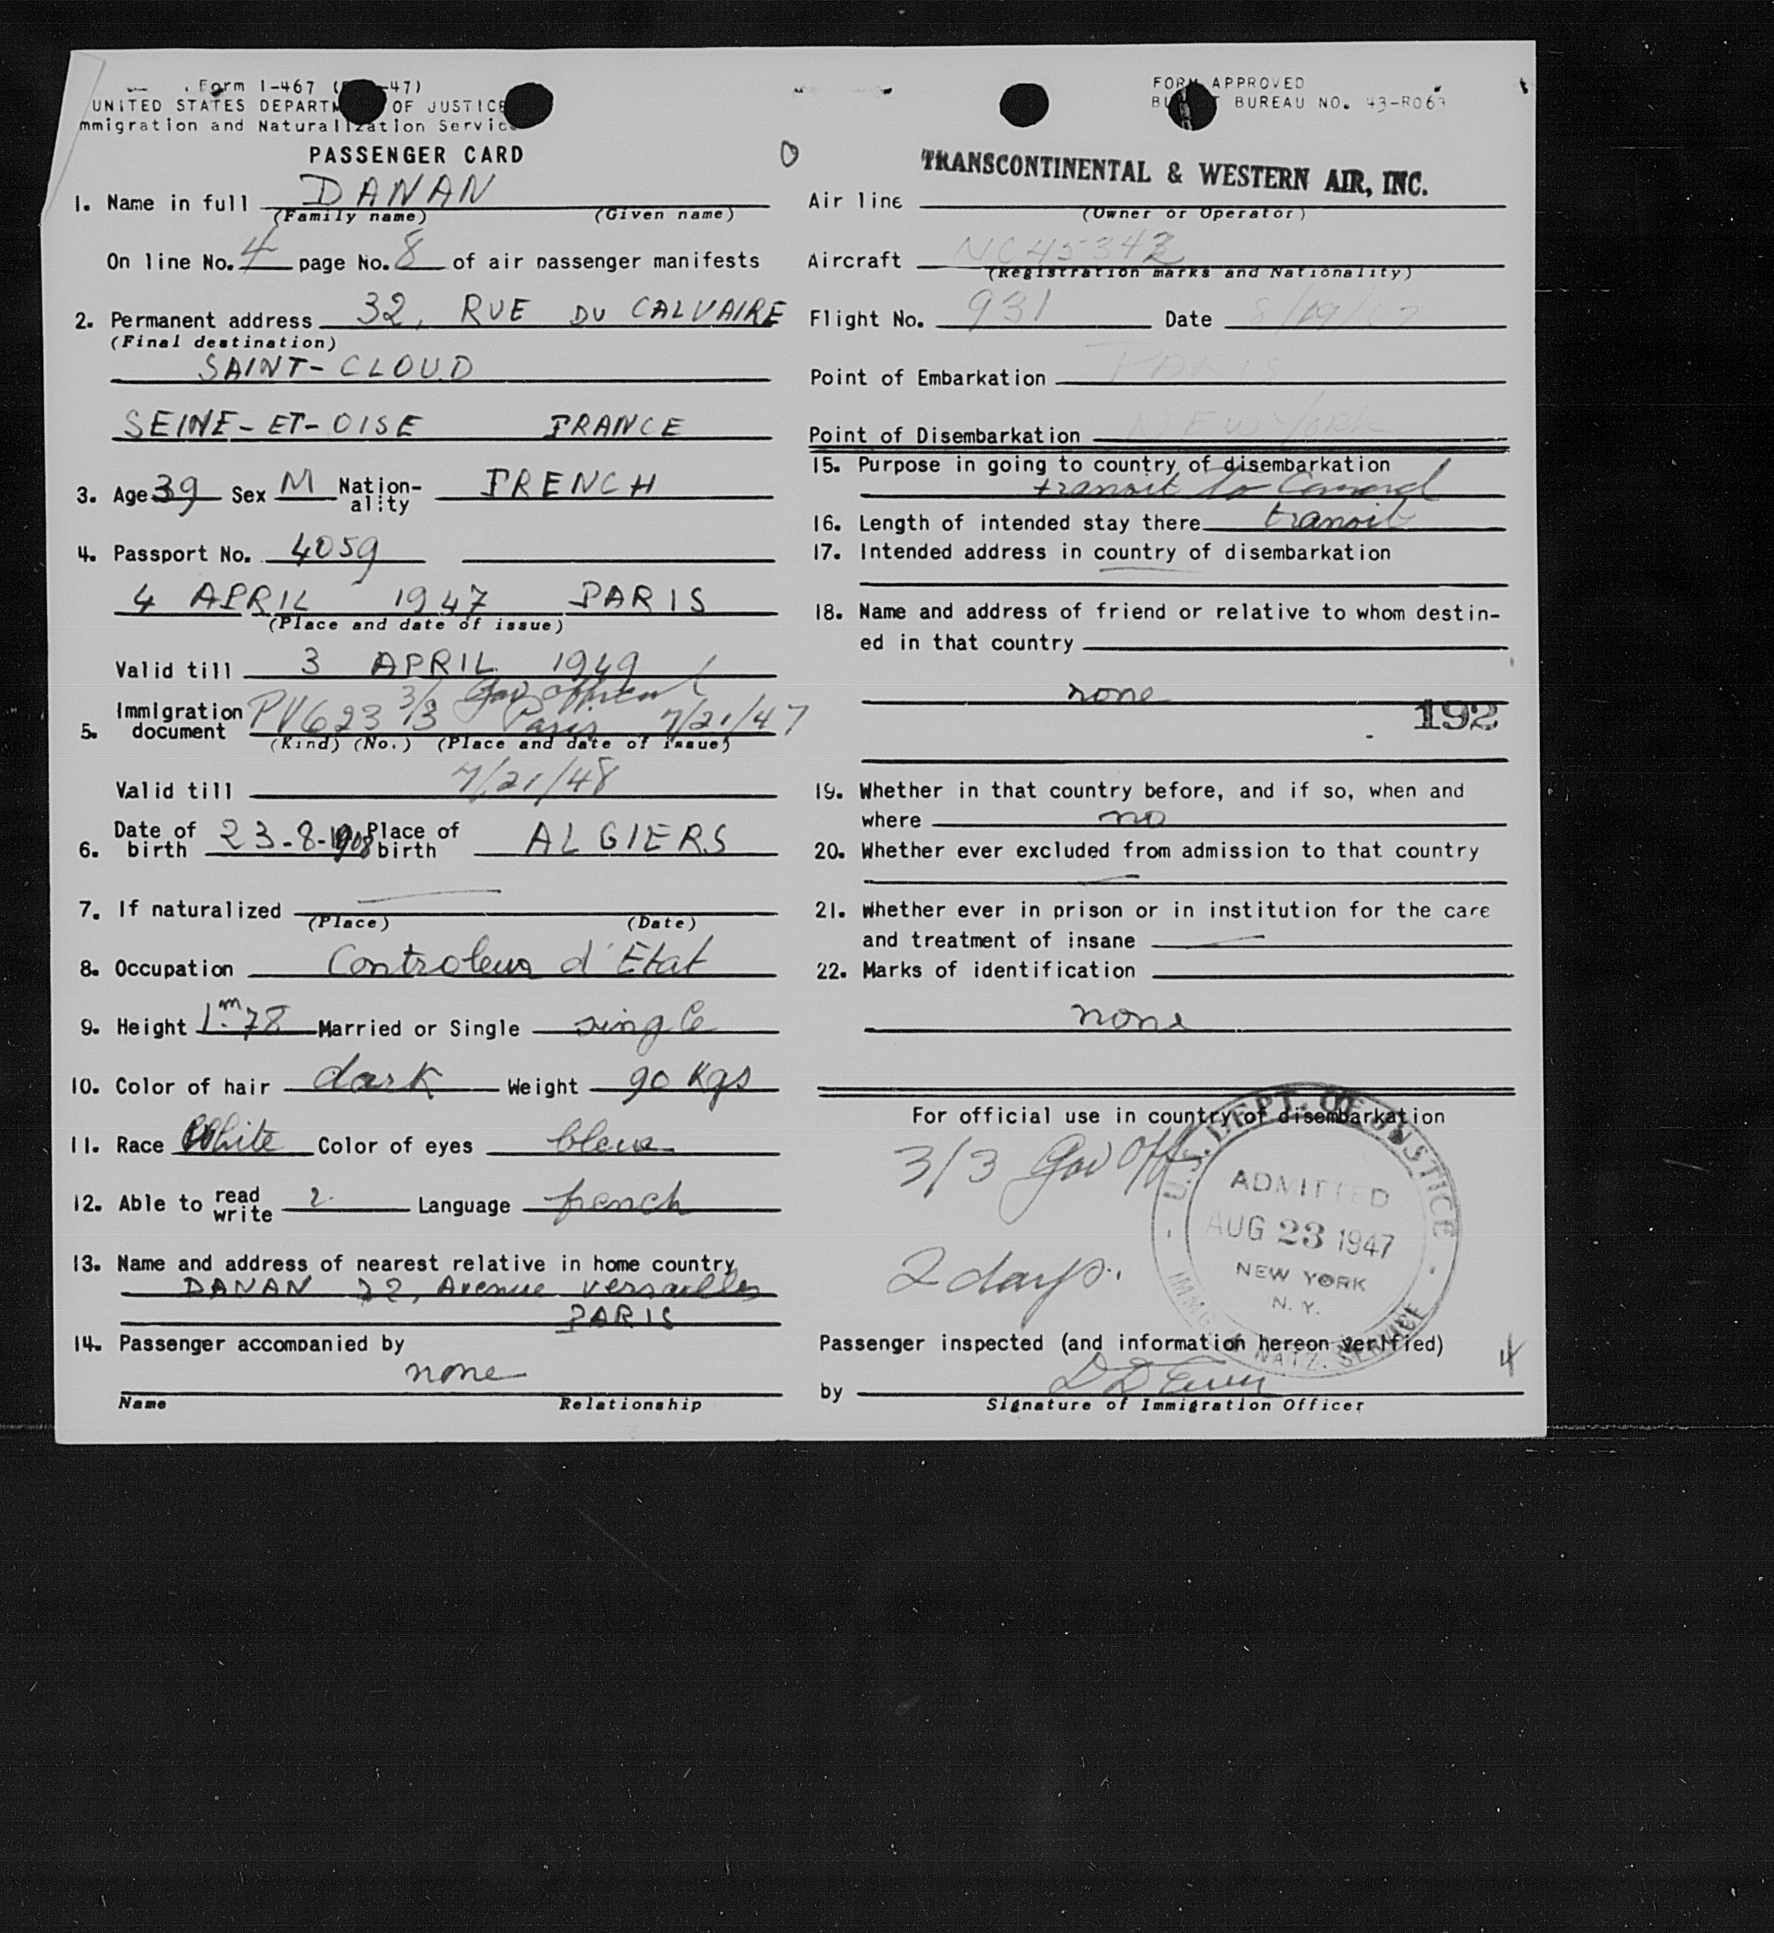 Form I-467 ( -47)
UNITED STATES DEPARTM OF JUSTICE
mmigration and Naturalization Servic
PASSENGER CARD
1. Name in full DANAN
(Family name) (Given name)
On line No. 4 page No. 8 of air passenger manifests
2. Permanent address 32, RUE DU CALVAIRE
(Final destination)
SAINT-CLOUD
SEINE-ET-OISE FRANCE
3. Age 39 Sex M Nation-ality FRENCH
4. Passport No. 4059
4 APRIL 1947 PARIS
(Place and date of issue)
Valid till 3 APRIL 1949
3/3 Gov official
5. Immigration document PV623 Paris 7/21/47
(Kind) (No.) (Place and date of issue)
Valid till 7/21/48
6. Date of birth 23-8-1908 Place of birth ALGIERS
7. If naturalized
(Place) (Date)
8. Occupation Controleur d'Etat
9. Height 1m.78 Married or Single single
10. Color of hair dark Weight 90 Kgs
11. Race White Color of eyes bleue
12. Able to read write 2. Language french
13. Name and address of nearest relative in home country
DANAN 22, Avenue Versailles
PARIS
14. Passenger accompanied by
none
Name Relationship
FORM APPROVED
BU T BUREAU NO. 43-R063
0
TRANSCONTINENTAL & WESTERN AIR, INC.
Air line
(Owner or Operator)
Aircraft NC45343
(Registration marks and Nationality)
Flight No. 931 Date 8/19/47
Point of Embarkation PARIS
Point of Disembarkation NEW YORK
15. Purpose in going to country of disembarkation
transit to Canad
16. Length of intended stay there transit
17. Intended address in country of disembarkation
18. Name and address of friend or relative to whom destin-
ed in that country
none
192
19. Whether in that country before, and if so, when and
where no
20. Whether ever excluded from admission to that country
21. Whether ever in prison or in institution for the care
and treatment of insane
22. Marks of identification
none
For official use in country of disembarkation
3/3 Gov Off
2 days.
U.S. DEPT. OF JUSTICE
ADMITTED
AUG 23 1947
NEW YORK
N. Y.
IMMG. & NATZ. SERVICE
Passenger inspected (and information hereon verified)
4
by
Signature of Immigration Officer